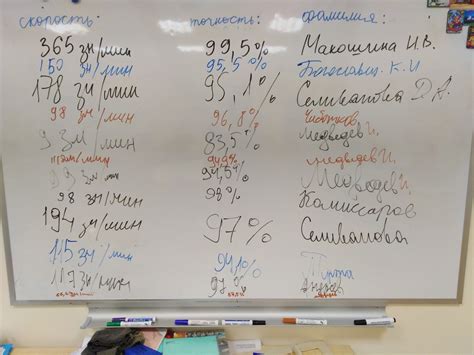 скорость: точность: фамилия:
365 зн/мин 99,5% Макошина И.В.
150 зн/мин 95,5% К.И
178 зн/мин 95,1% Селиванова Д.А.
98 зн/мин 96,8%
зн/мин 83,5% Медведев И.
зн/мин 94,9% медведев И.
зн/мин 94,5% Медведев И,
98 зн/мин 98% Комиссаров
194 зн/мин 97% Селиванова
115 зн/мин 94%
117 зн/мин